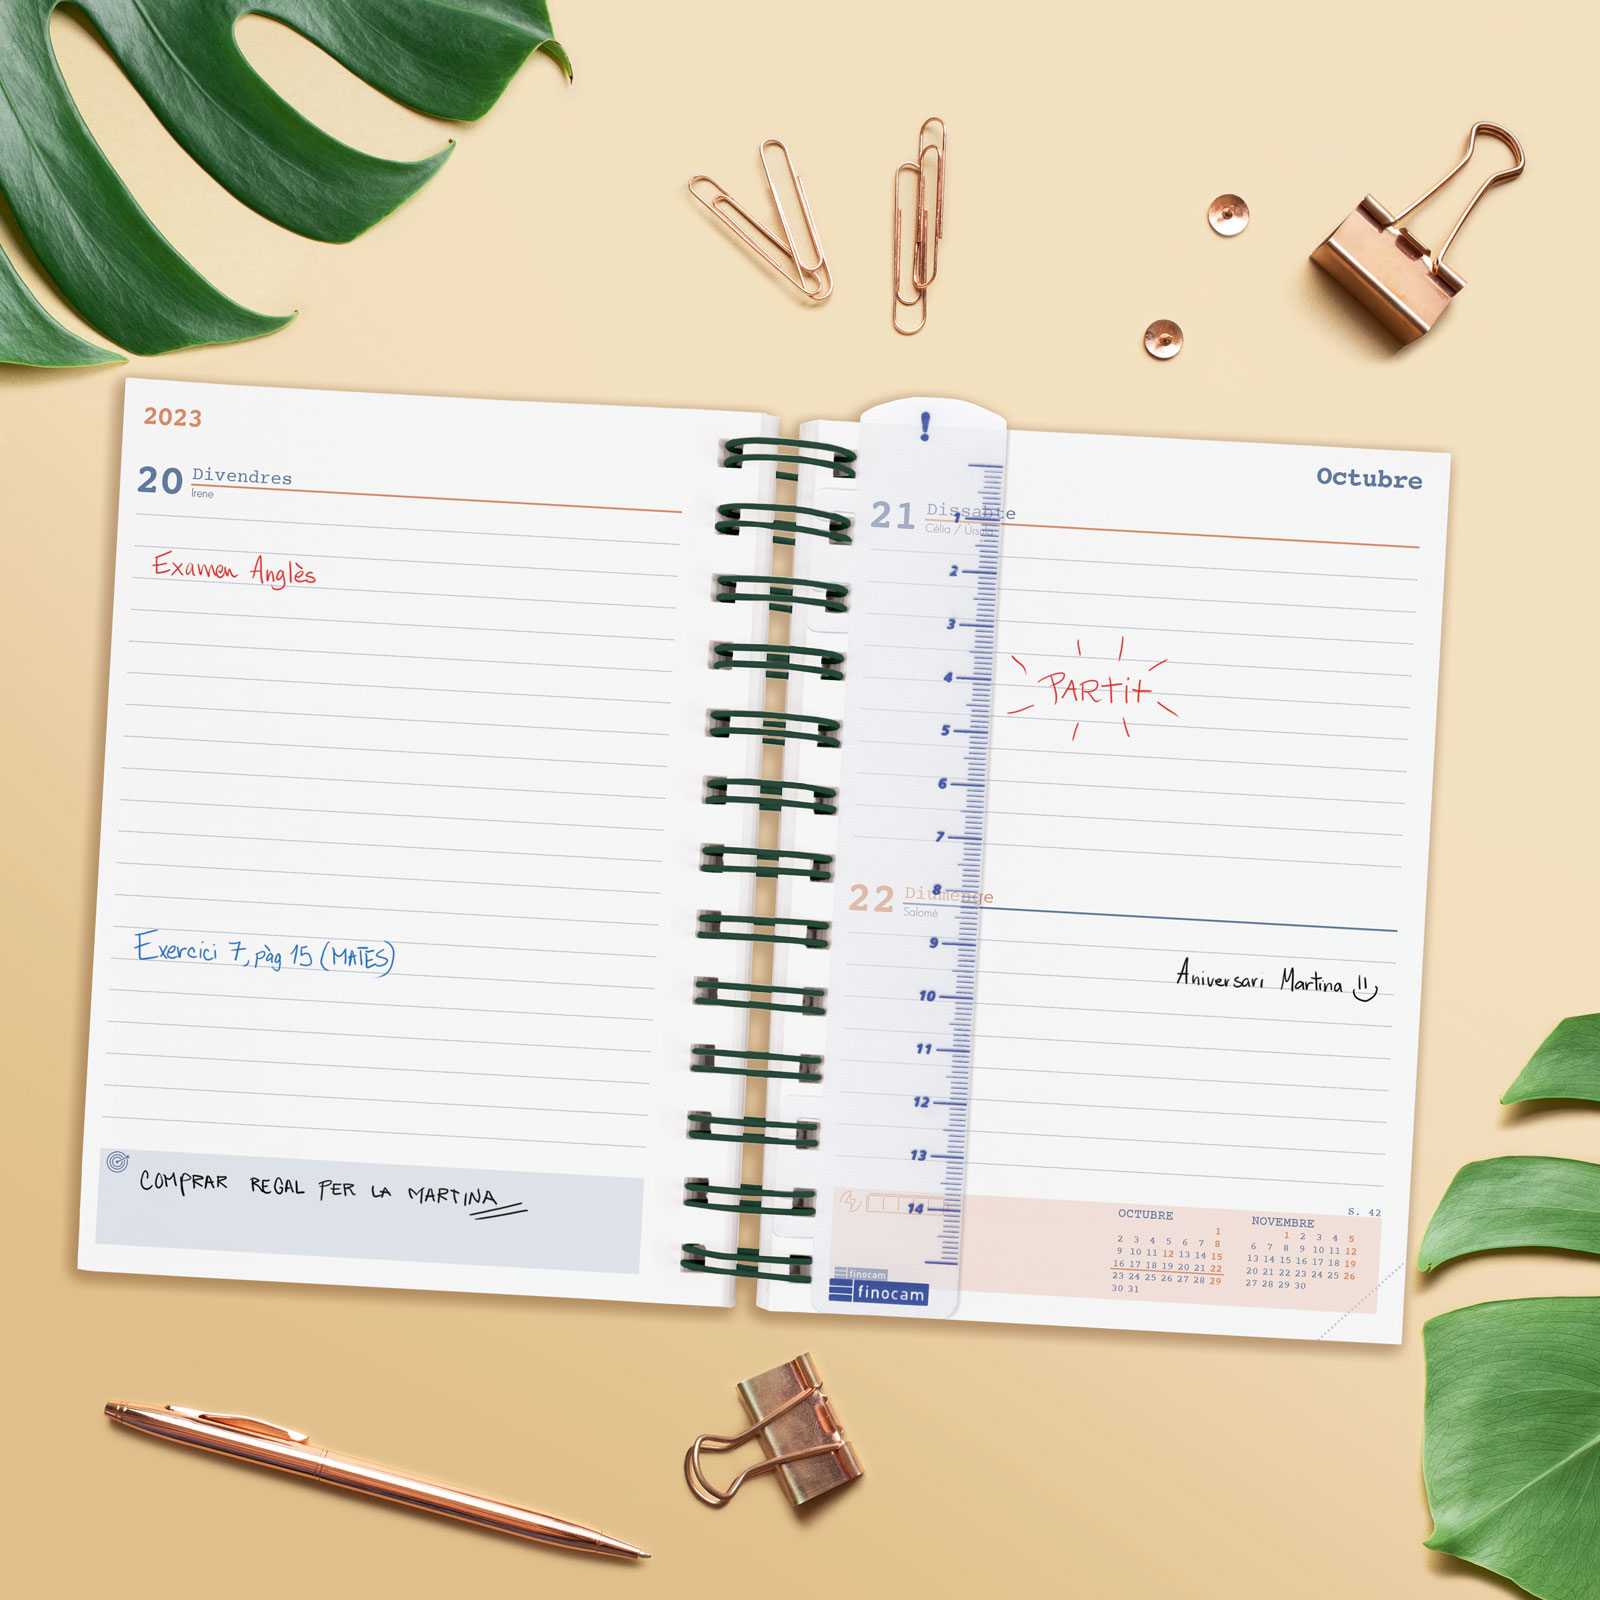 2023
20 Divendres
Irene
Examen Anglès
Exercici 7, pàg 15 (MATES)
COMPRAR REGAL PER LA MARTINA
!
Octubre
21 Dissabte
Cèlia / Úrsula
PARTIT
22 Diumenge
Salomé
Aniversari Martina
1
2
3
4
5
6
7
8
9
10
11
12
13
14
S. 42
OCTUBRE
1
2 3 4 5 6 7 8
9 10 11 12 13 14 15
16 17 18 19 20 21 22
23 24 25 26 27 28 29
30 31
NOVEMBRE
1 2 3 4 5
6 7 8 9 10 11 12
13 14 15 16 17 18 19
20 21 22 23 24 25 26
27 28 29 30
finocam
finocam